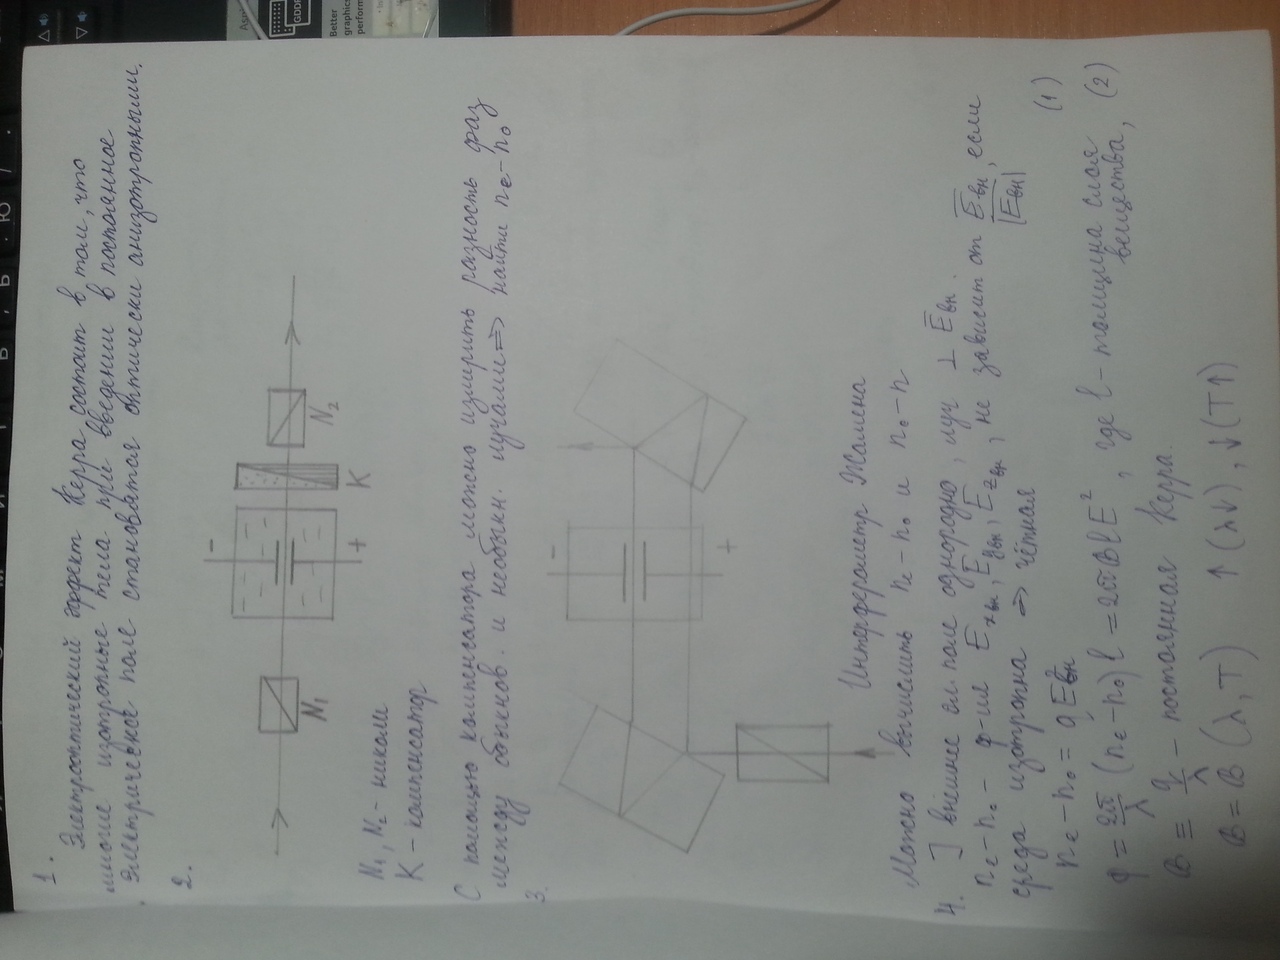 1. Электрооптический эффект Керра состоит в том, что
многие изотропные тела при введении в постоянное
электрическое поле становятся оптически анизотропными.
2.
N₁
N₂
K
-
+
N₁, N₂ - николи
K - компенсатор
С помощью компенсатора можно измерить разность фаз
между обыкнов. и необыкн. лучами ⇒ найти nₑ-n₀
3.
-
+
Интерферометр Жамена
Можно вычислить nₑ-n₀ и n₀-n
4. ] внешнее эл. поле однородно, луч ⊥ E̅вн.
nₑ-n₀ - ф-ия Eₓвн, Eᵧвн, E_zвн, не зависит от E̅вн/|E̅вн|, если
среда изотропна ⇒ чётная
nₑ-n₀ = qE²вн (1)
φ = 2π/λ (nₑ-n₀)l = 2πBlE², где l - толщина слоя
вещества, (2)
B ≡ q/λ - постоянная Керра
B = B(λ,T) ↑(λ↓), ↓(T↑)
Better
graphics
perform